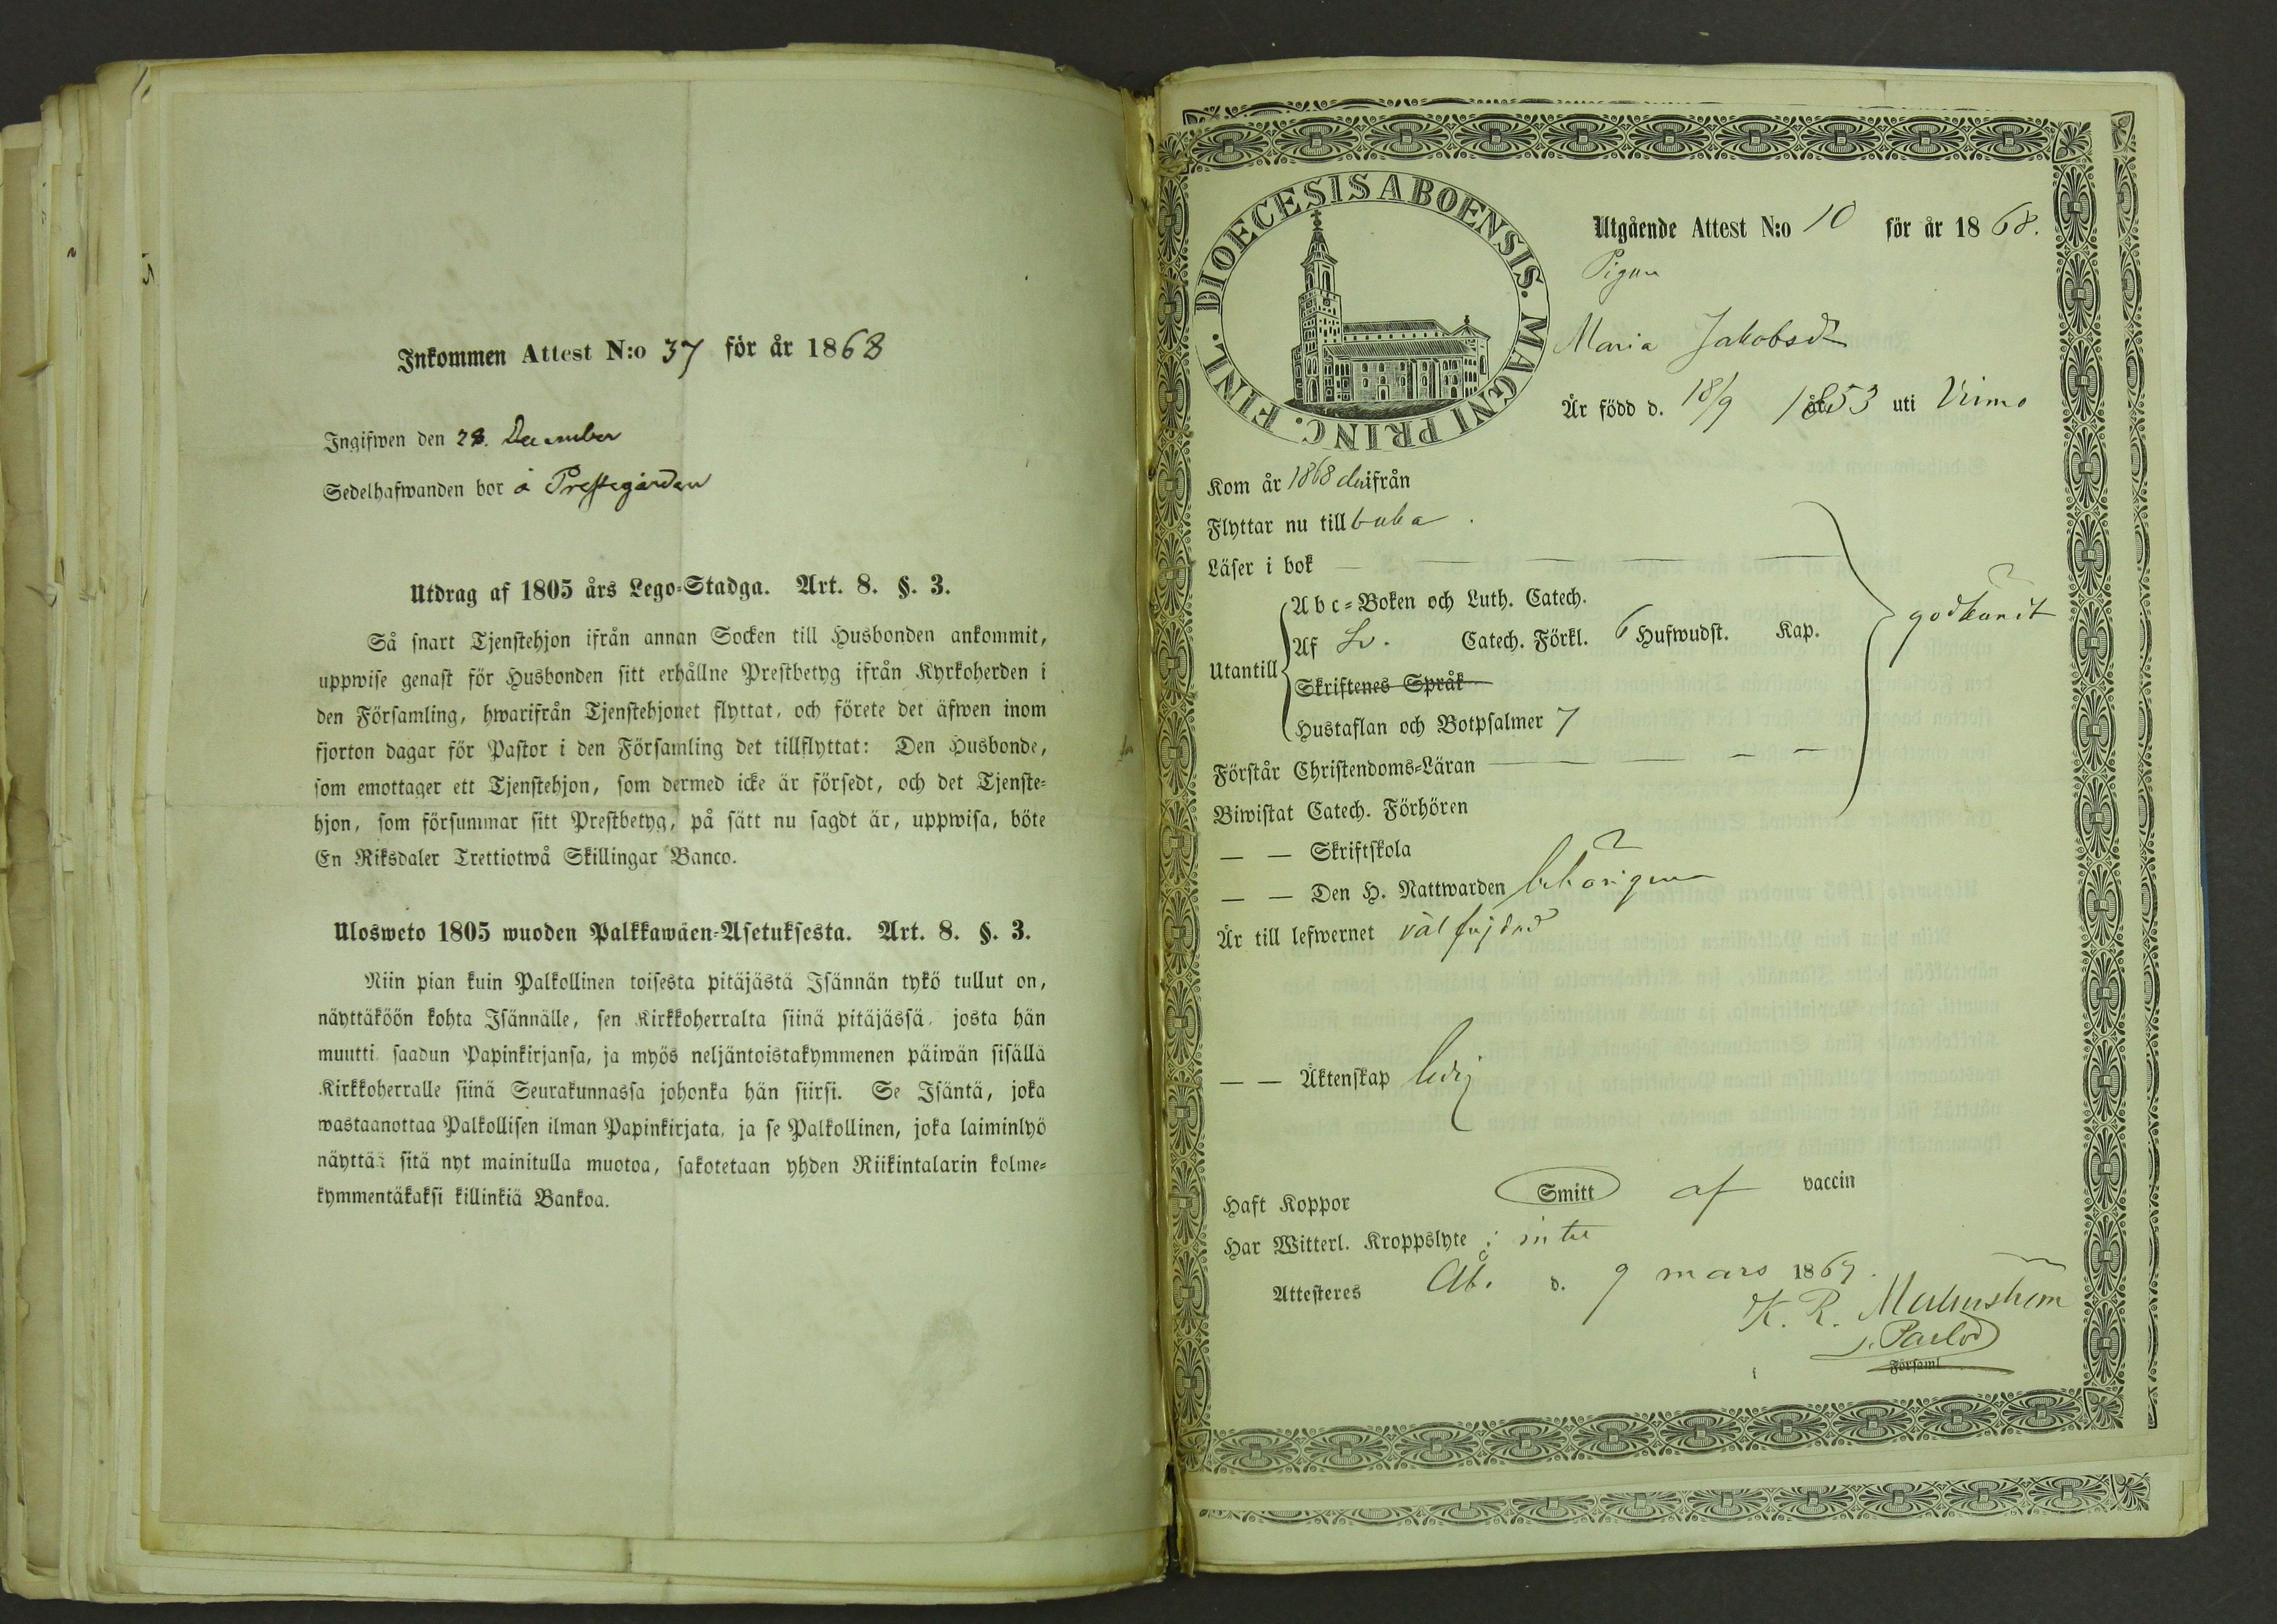 Inkommen Attest N:o 37 för år 1868
Ingifwen den 28. December
Sedelhafwanden bor å Prestegården
Utdrag af 1805 års Lego-Stadga. Art. 8. §. 3.
Så snart Tjenstehjon ifrån annan Socken till Husbonden ankommit,
uppwise genast för Husbonden sitt erhållne Prestbetyg ifrån Kyrkoherden i
den Församling, hwarifrån Tjenstehjonet flyttat, och förete det äfwen inom
fjorton dagar för Pastor i den Församling det tillflyttat: Den Husbonde,
som emottager ett Tjenstehjon, som dermed icke är försedt, och det Tjenste-
hjon, som försummar sitt Prestbetyg, på sätt nu sagdt är, uppwisa, böte
En Riksdaler Trettiotwå Skillingar Banco.
Ulosweto 1805 wuoden Palkkawäen-Asetuksesta. Art. 8. §. 3.
Niin pian kuin Palkollinen toisesta pitäjästä Isännän tykö tullut on,
näyttäköön kohta Isännälle, sen Kirkkoherralta siinä pitäjässä, josta hän
muutti, saadun Papinkirjansa, ja myös neljäntoistakymmenen päiwän sisällä
Kirkkoherralle siinä Seurakunnassa johonka hän siirsi. Se Isäntä, joka
wastaanottaa Palkollisen ilman Papinkirjata, ja se Palkollinen, joka laiminlyö
näyttää sitä nyt mainitulla muotoa, sakotetaan yhden Riikintalarin kolme-
kymmentäkaksi killinkiä Bankoa.
DIOECESIS ABOENSIS. MAGNI PRINC. FINL.
Utgående Attest N:o 10 för år 1868.
Pigan
Maria Jakobsdr
Är född d. 18/9 1853 uti Virmo
Kom år 1868 derifrån
Flyttar nu till baka.
Läser i bok
Utantill
Abc-Boken och Luth. Catech.
Af Sv. Catech. Förkl. 6 Hufwudst. Kap.
Skriftenes Språk
Hustaflan och Botpsalmer 7
godkändt
Förstår Christendoms-Läran
Biwistat Catech. Förhören
— — Skriftskola
— — Den H. Nattwarden behörigen
Är till lefwernet välfrejdad
— — Äktenskap ledig
Haft Koppor Smitt af vaccin
Har Witterl. Kroppslyte: inte
Attesteres Åbo d. 9 mars 1869.
K. R. Malmström
v. Pastor
Församl.